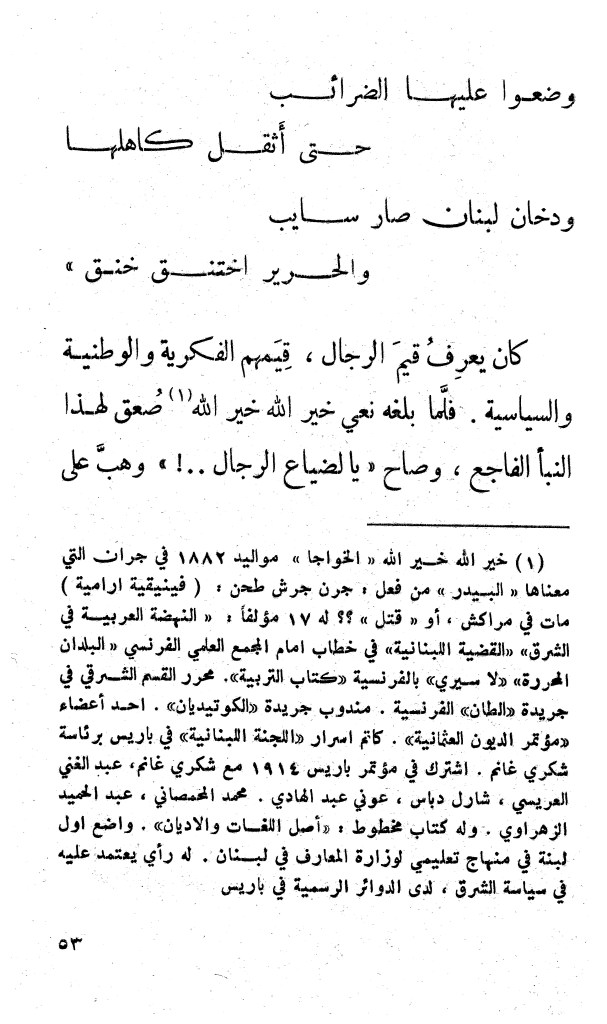 وضعوا عليها الضرائب
حتى أَثقل كاهلها
ودخان لبنان صار سايب
والحرير اختنق خنق »
كان يعرِفُ قيمَ الرجال ، قِيَمهم الفكرية والوطنية
والسياسية . فلَّما بلغه نعي خير الله خير الله (١) صُعق لهذا
النبأ الفاجع ، وصاح « يا لضياع الرجال ..! » وهبَّ على
(١) خير الله خير الله « الخواجا » مواليد ١٨٨٢ في جران التي
معناها « البيدر » من فعل : جرن جرش طحن : ( فينيقية ارامية )
مات في مراكش ، أو « قتل » ؟؟ له ١٧ مؤلفاً : « النهضة العربية في
الشرق» «القضية اللبنانية» في خطاب امام المجمع العلمي الفرنسي «البلدان
المحررة» «لا سيري» بالفرنسية «كتاب التربية». محرر القسم الشرقي في
جريدة «الطان» الفرنسية . مندوب جريدة «الكوتيديان» . احد أعضاء
«مؤتمر الديون العثمانية» . كاتم اسرار «اللجنة اللبنانية» في باريس برئاسة
شكري غانم . اشترك في مؤتمر باريس ١٩١٤ مع شكري غانم، عبد الغني
العريسي ، شارل دباس ، عوني عبد الهادي . محمد المحمصاني ، عبد الحميد
الزهراوي . وله كتاب مخطوط : «أصل اللغات والاديان» . واضع اول
لبنة في منهاج تعليمي لوزارة المعارف في لبنان . له رأي يعتمد عليه
في سياسة الشرق ، لدى الدوائر الرسمية في باريس
٥٣